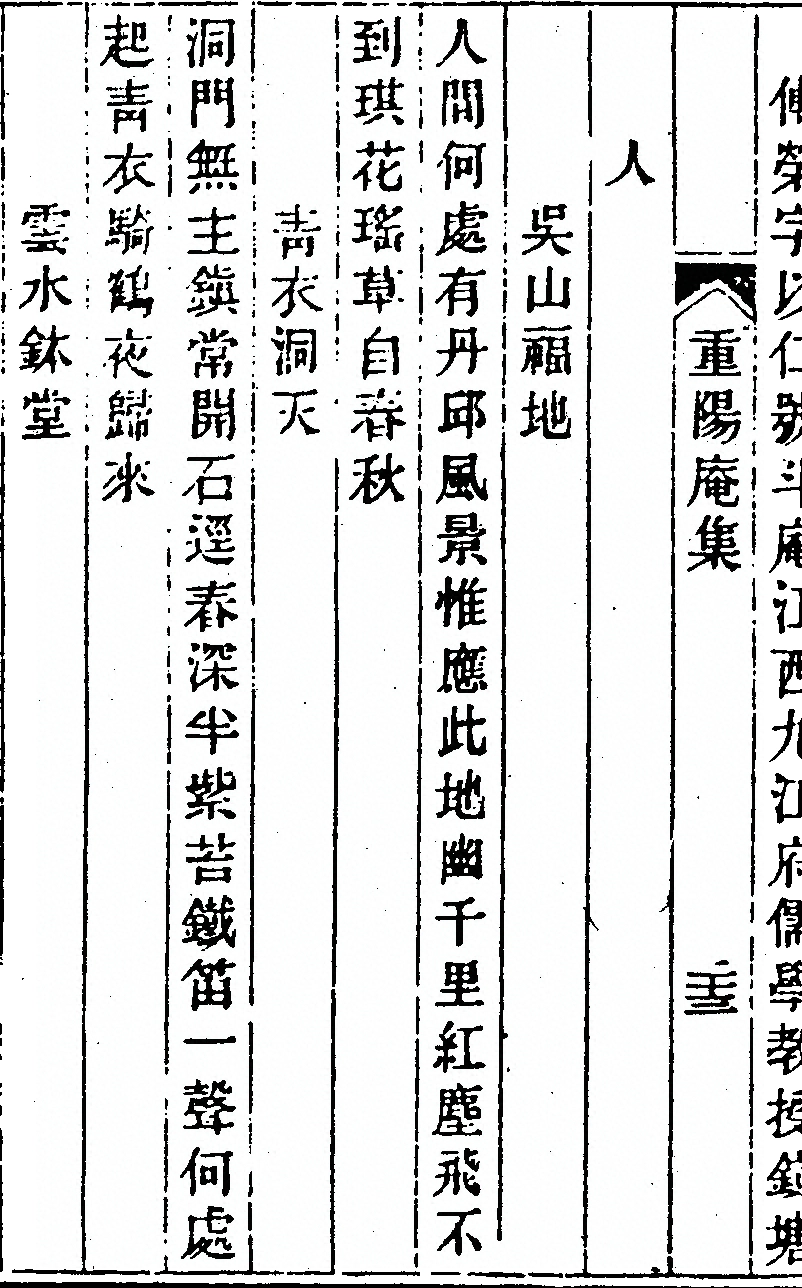 榮字以仁號斗庵江西九江府儒學教授錢塘
重陽庵集 二十三
人
吳山福地
人間何處有丹邱風景惟應此地幽千里紅塵飛不
到琪花瑤草自春秋
青衣洞天
洞門無主鎮常開石逕春深半紫苔鐵笛一聲何處
起青衣騎鶴夜歸來
雲水鉢堂